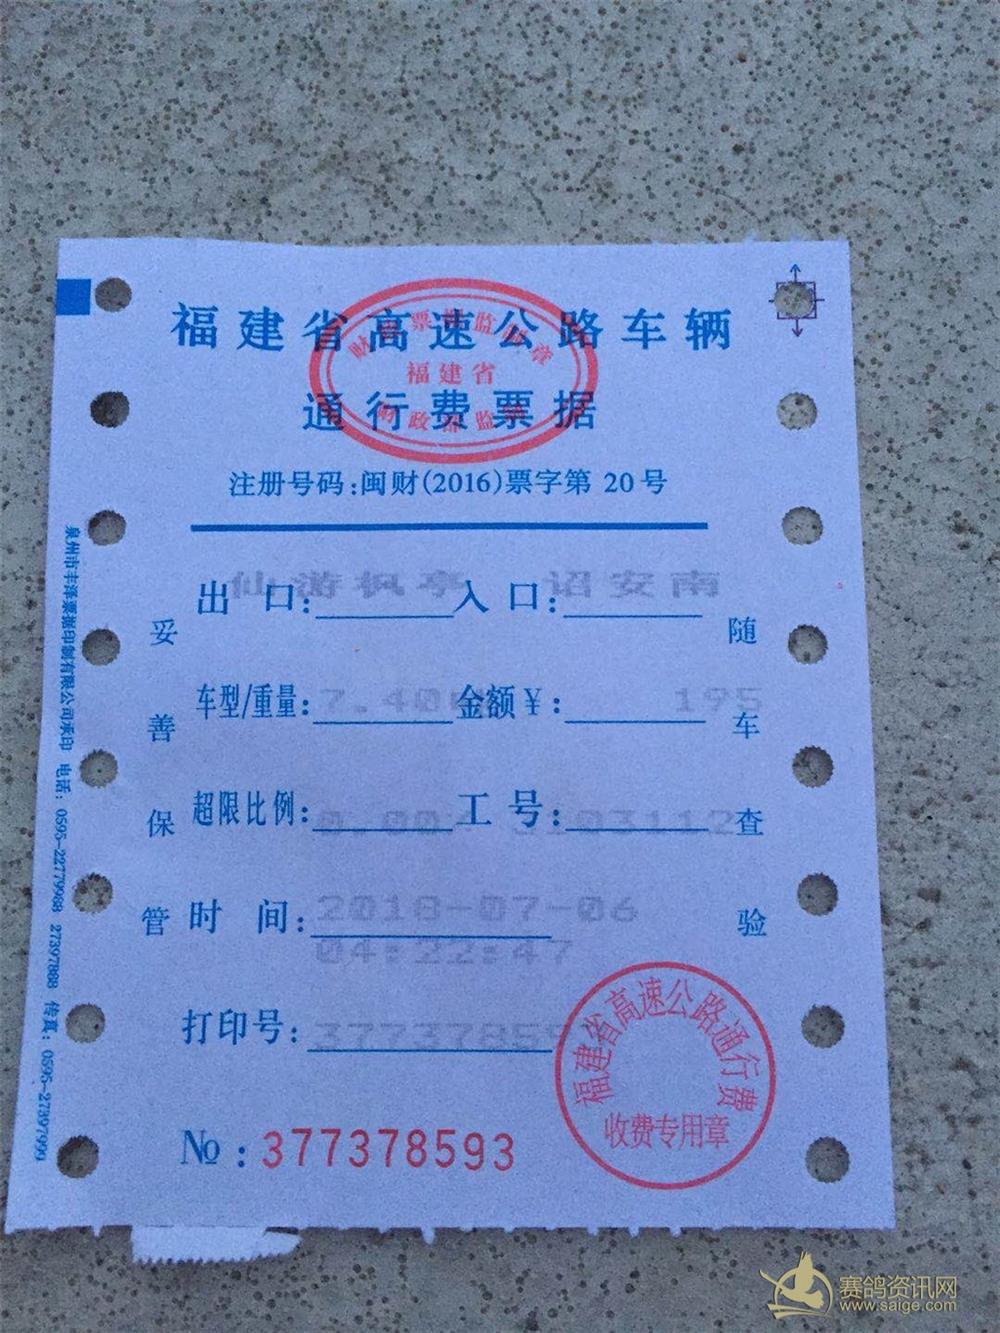 福建省高速公路车辆
通行费票据
福建省
注册号码:闽财(2016)票字第 20号
出 口: 仙游枫亭 入 口: 诏安南
车型/重量: 7.40 金额¥: 195
超限比例: 0.00 工 号: 3103112
时 间: 2018-07-06
04:22:47
打印号: 37737859
№: 377378593
妥善保管
随车查验
泉州市丰泽票据印制有限公司承印 电话: 0595-22779988 27397888 传真: 0595-27397999
福建省高速公路通行费
收费专用章
赛鸽资讯网
www.saige.com